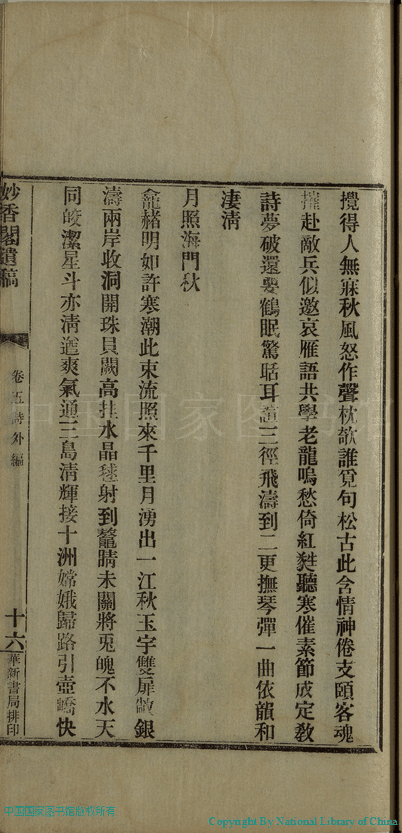 攪得人無寐秋風怒作聲枕欹誰覓句松古此含情神倦支頤客魂
摧赴敵兵似邀哀雁語共學老龍鳴愁倚紅甃聽寒催素節成定教
詩夢破還嬰鶴眠驚聒耳諠三徑飛濤到二更撫琴彈一曲依韻和
凄清
月照海門秋
龕赭明如許寒潮此東流照來千里月湧出一江秋玉宇雙扉敞銀
濤兩岸收洞開珠貝闕高挂水晶毬射到鼇睛未關將兎魄不水天
同皎潔星斗亦清遒爽氣通三島清輝接十洲嫦娥歸路引壺嶠快
妙香閣遺稿
卷五詩外編
十六
華新書局排印
中国国家图书馆版权所有
Copyright By National Library of China